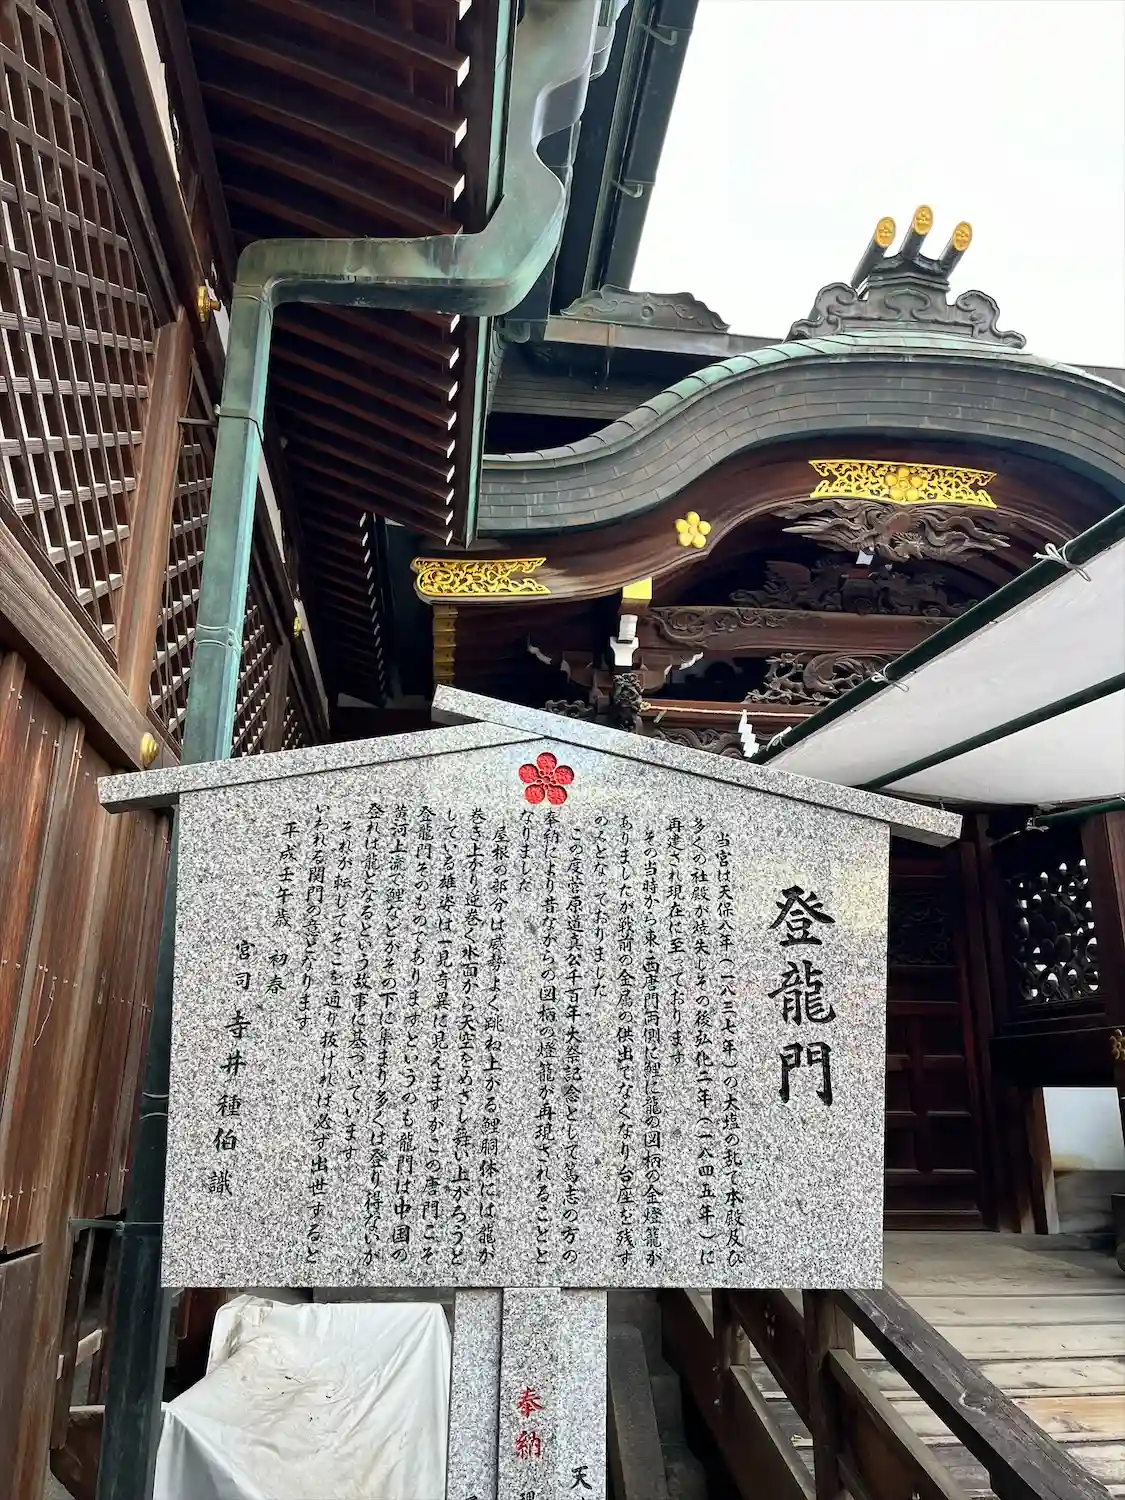 登龍門
当宮は天保八年(一八三七年)の大塩の乱で本殿及び
多くの社殿が焼失しその後弘化二年(一八四五年)に
再建され現在に至っております
その当時から東・西唐門両側に鯉に龍の図柄の金燈籠が
ありましたが戦前の金属の供出でなくなり台座を残す
のみとなっておりました
この度菅原道真公千百年大祭記念として篤志の方の
奉納により昔ながらの図柄の燈籠が再現されることと
なりました
屋根の部分は威勢よく跳ね上がる鯉胴体には龍が
巻き上がり逆巻く水面から天空をめざし舞い上がろうと
している雄姿は一見奇異に見えますがこの唐門こそ
登龍門そのものでありますというのも龍門は中国の
黄河上流で鯉などがその下に集まり多くは登り得ないが
登れば龍となるという故事に基づいています
それが転じてそこを通り抜ければ必ず出世すると
いわれる関門の意となります
平成壬午歳 初春
宮司 寺井種伯 識
奉納
天